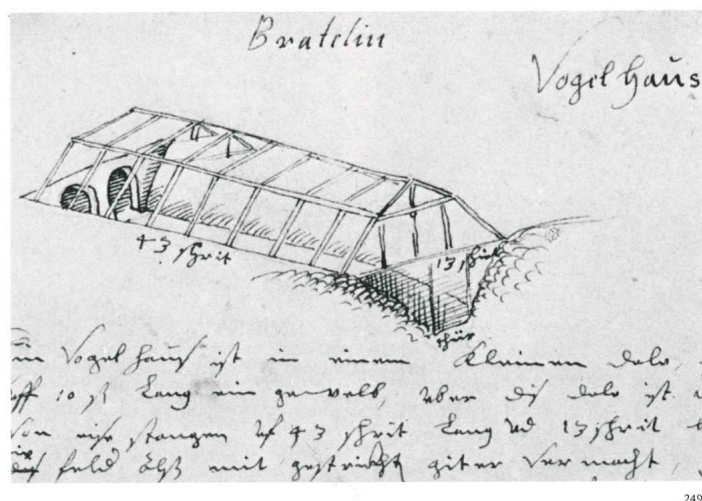 Bratelin
Vogel haüs
43 schrit
13 schrit
thür
Vogel hauß ist in einem Kleinen dolo,
10 Lang ein gewelb, über diß dolo ist
stangen uf 43 schrit Lang vd 13 schrit
feld alß mit gestrickt giter vermacht,
249